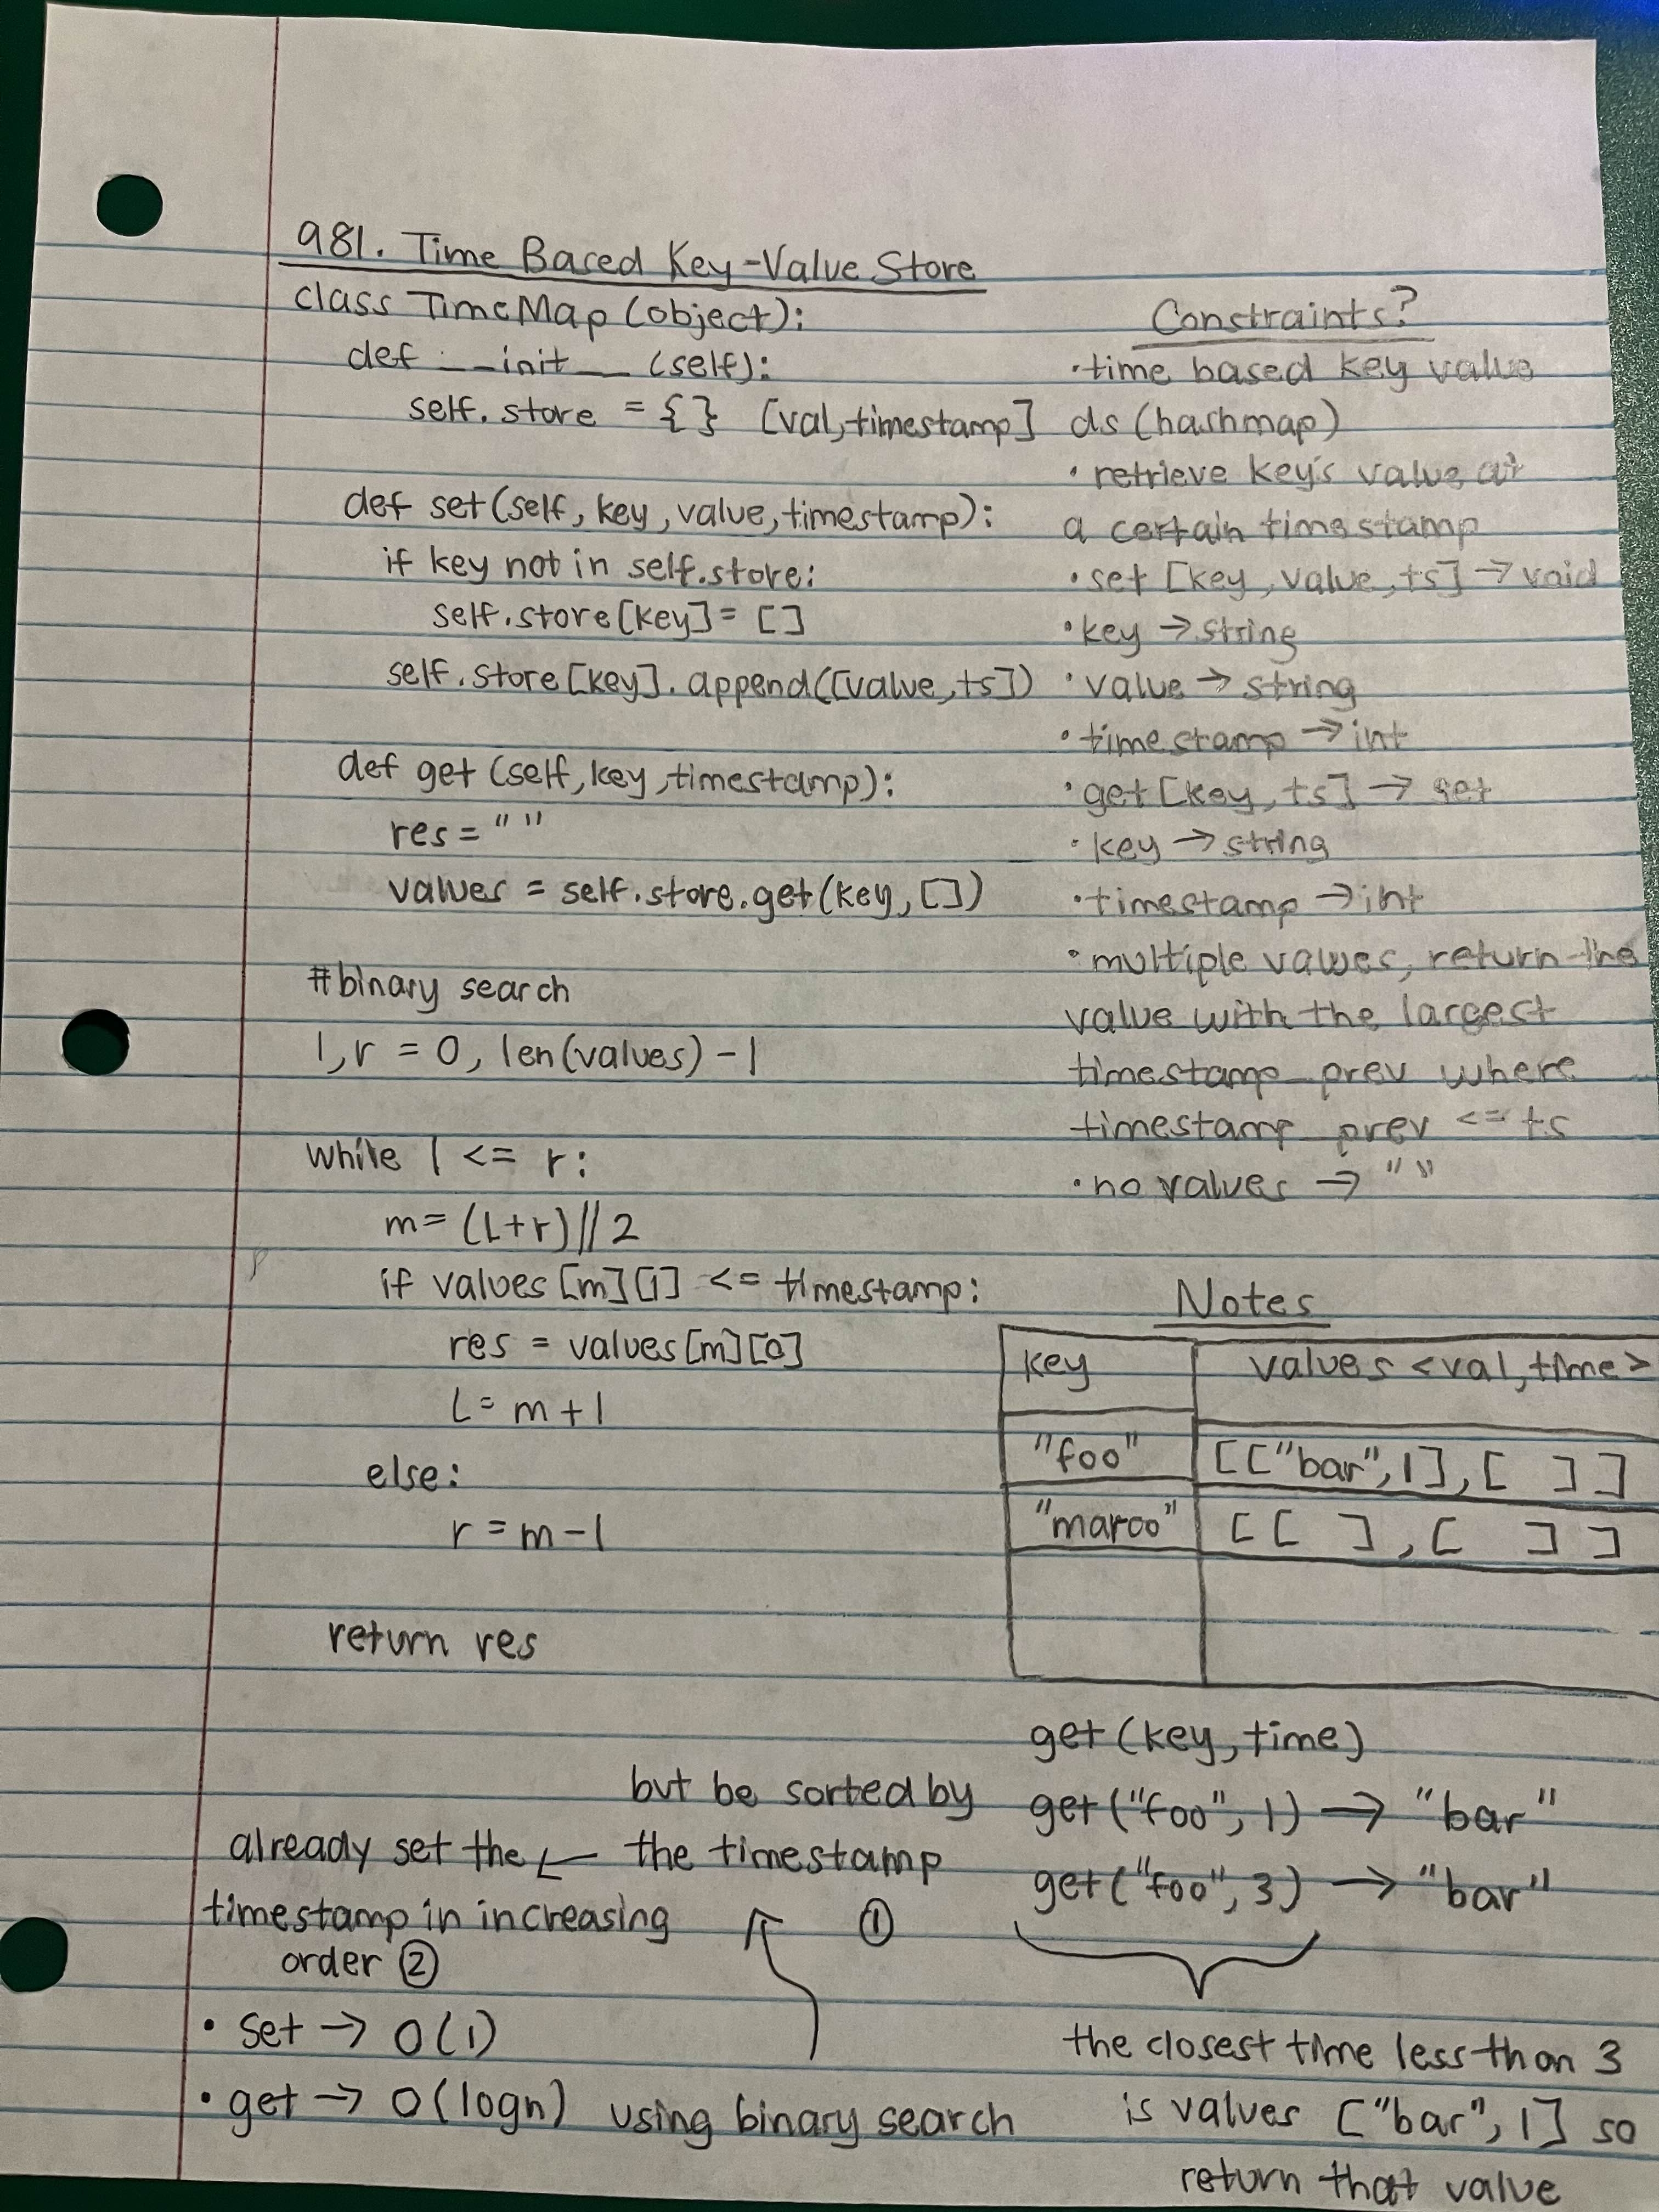 981. Time Based Key-Value Store
class TimeMap (object):
def __init__ (self):
self.store = {} [val, timestamp]
def set(self, key, value, timestamp):
if key not in self.store:
self.store[key] = []
self.store[key].append([value, ts])
def get (self, key, timestamp):
res = " "
values = self.store.get(key, [])
#binary search
l, r = 0, len(values) - 1
while l <= r:
m = (L+r)//2
if values[m][1] <= timestamp:
res = values[m][0]
L = m + 1
else:
r = m - 1
return res
Constraints?
•time based key value
ds (hashmap)
• retrieve key's value at
a certain timestamp
• set [key, value, ts] → void
• key → string
• value → string
• timestamp → int
• get [key, ts] → set
• key → string
• timestamp → int
• multiple values, return the
value with the largest
timestamp_prev where
timestamp_prev <= ts
• no values → " "
Notes
key values <val, time>
"foo" [["bar", 1], [ ]]
"marco" [[ ], [ ]]
get (key, time)
get ("foo", 1) → "bar"
get ("foo", 3) → "bar"
the closest time less than 3
is values ["bar", 1] so
return that value
but be sorted by
the timestamp
①
already set the ←
timestamp in increasing
order ②
• set → O(1)
• get → O(logn) using binary search